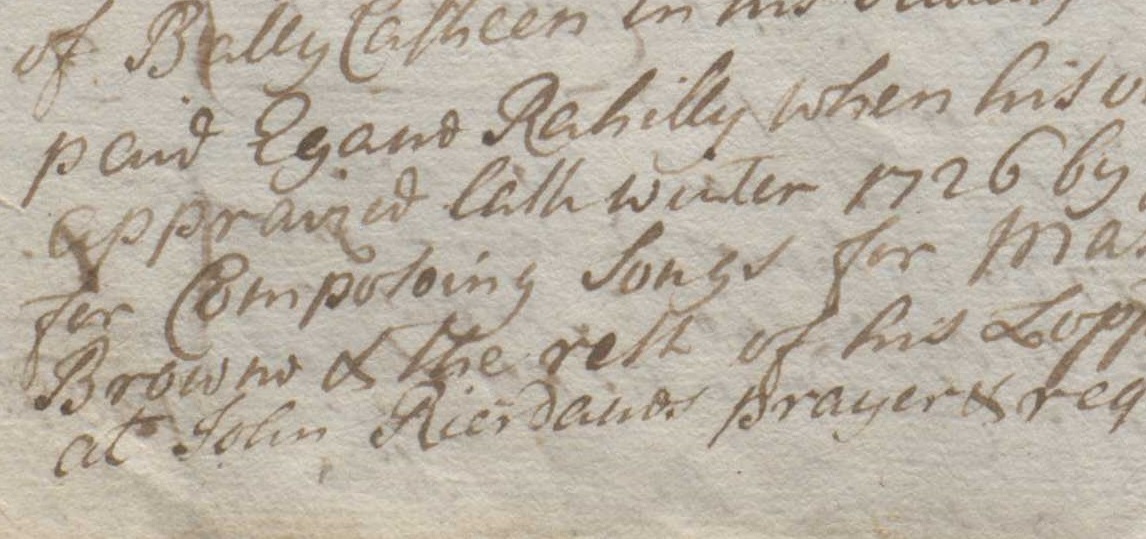 of Bally Casheen in his
paid Egans Rahilly when his
appraized last winter 1726 by
for Composeing Songs for
Browne & the rest of his
at John Rierdans prayer &